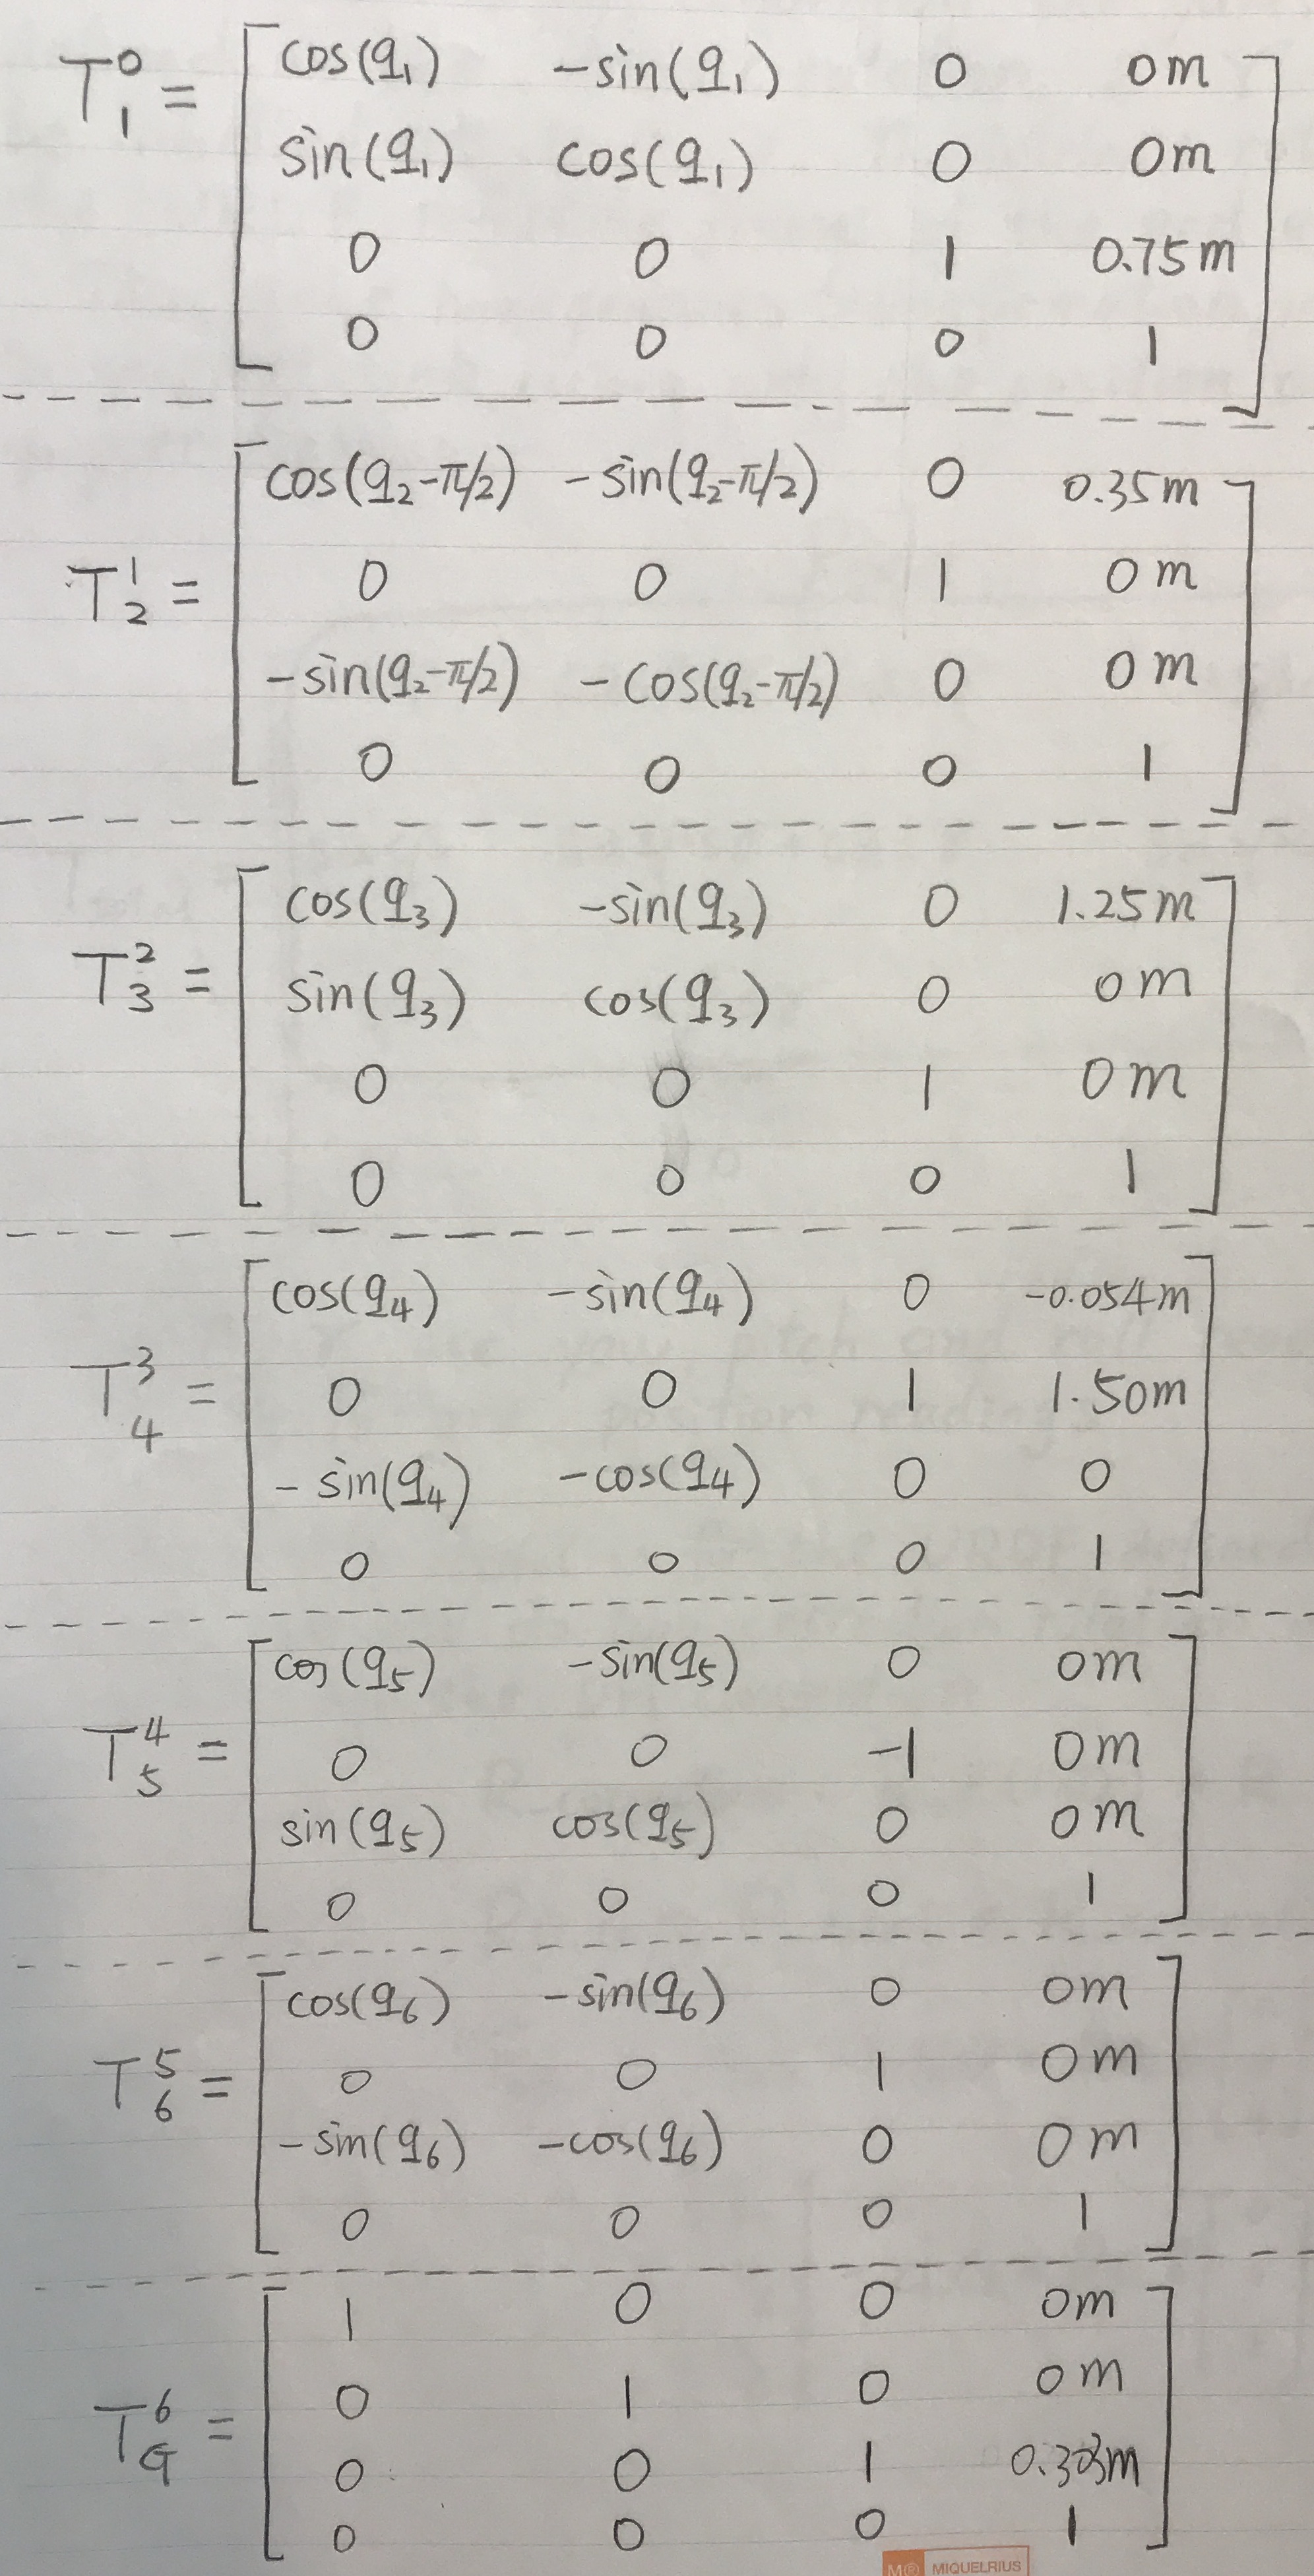 T⁰₁ = [ cos(q₁) -sin(q₁) 0 0m
sin(q₁) cos(q₁) 0 0m
0 0 1 0.75m
0 0 0 1 ]
T¹₂ = [ cos(q₂-π/2) -sin(q₂-π/2) 0 0.35m
0 0 1 0m
-sin(q₂-π/2) -cos(q₂-π/2) 0 0m
0 0 0 1 ]
T²₃ = [ cos(q₃) -sin(q₃) 0 1.25m
sin(q₃) cos(q₃) 0 0m
0 0 1 0m
0 0 0 1 ]
T³₄ = [ cos(q₄) -sin(q₄) 0 -0.054m
0 0 1 1.50m
-sin(q₄) -cos(q₄) 0 0
0 0 0 1 ]
T⁴₅ = [ cos(q₅) -sin(q₅) 0 0m
0 0 -1 0m
sin(q₅) cos(q₅) 0 0m
0 0 0 1 ]
T⁵₆ = [ cos(q₆) -sin(q₆) 0 0m
0 0 1 0m
-sin(q₆) -cos(q₆) 0 0m
0 0 0 1 ]
T⁶G = [ 1 0 0 0m
0 1 0 0m
0 0 1 0.303m
0 0 0 1 ]
MR MIQUELRIUS